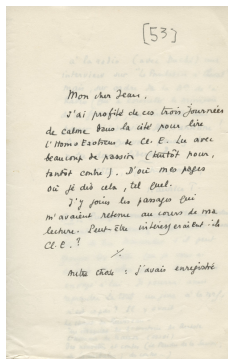 [53]
Mon cher Jean,
J'ai profité de ces trois journées
de calme dans la cité pour lire
l'Homo Esoticus de Cl. E. Lu avec
beaucoup de passion (tantôt pour,
tantôt contre). D'où mes pages
où je dis cela, tel quel.
J'y joins les passages qui
m'avaient retenu au cours de ma
lecture. Peut-être intéresseraient-ils
Cl. E. ?
Autre chose : j'avais enregistré